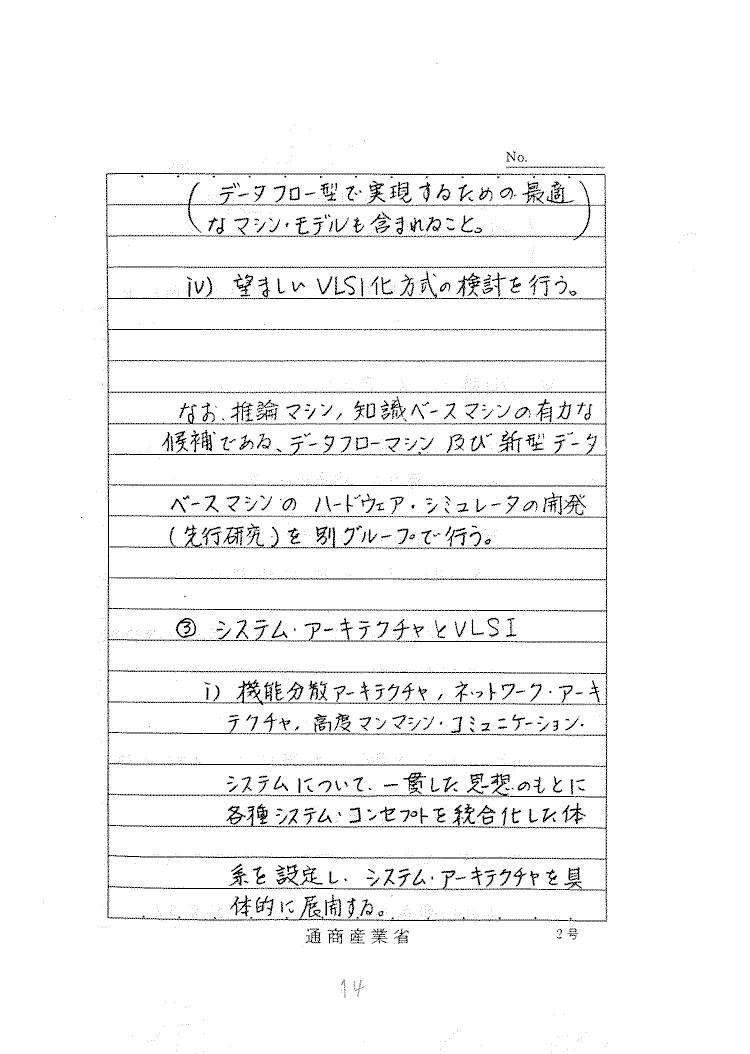 No.
(データフロー型で実現するための最適
なマシン・モデルも含まれること。)
iv) 望ましいVLSI化方式の検討を行う。
なお、推論マシン,知識ベースマシンの有力な
候補である、データフローマシン及び新型データ
ベースマシンの ハードウェア・シミュレータの開発
(先行研究)を別グループで行う。
③ システム・アーキテクチャとVLSI
i) 機能分散アーキテクチャ,ネットワーク・アーキ
テクチャ,高度マンマシン・コミュニケーション・
システムについて、一貫した思想のもとに
各種システム・コンセプトを統合化した体
系を設定し、システム・アーキテクチャを具
体的に展開する。
通商産業省 2号
14